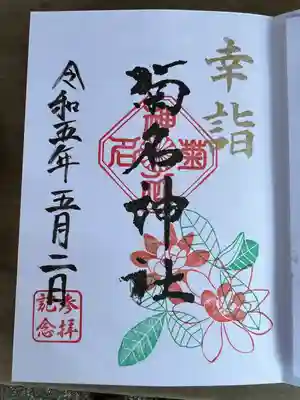 幸詣
菊名神社
菊名神社
令和五年五月二日
参拝
記念